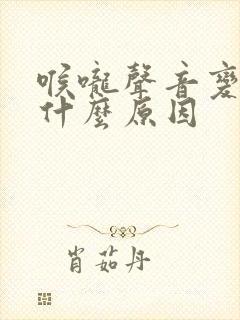 喉嚨聲音變
什麼原因
肖茹丹